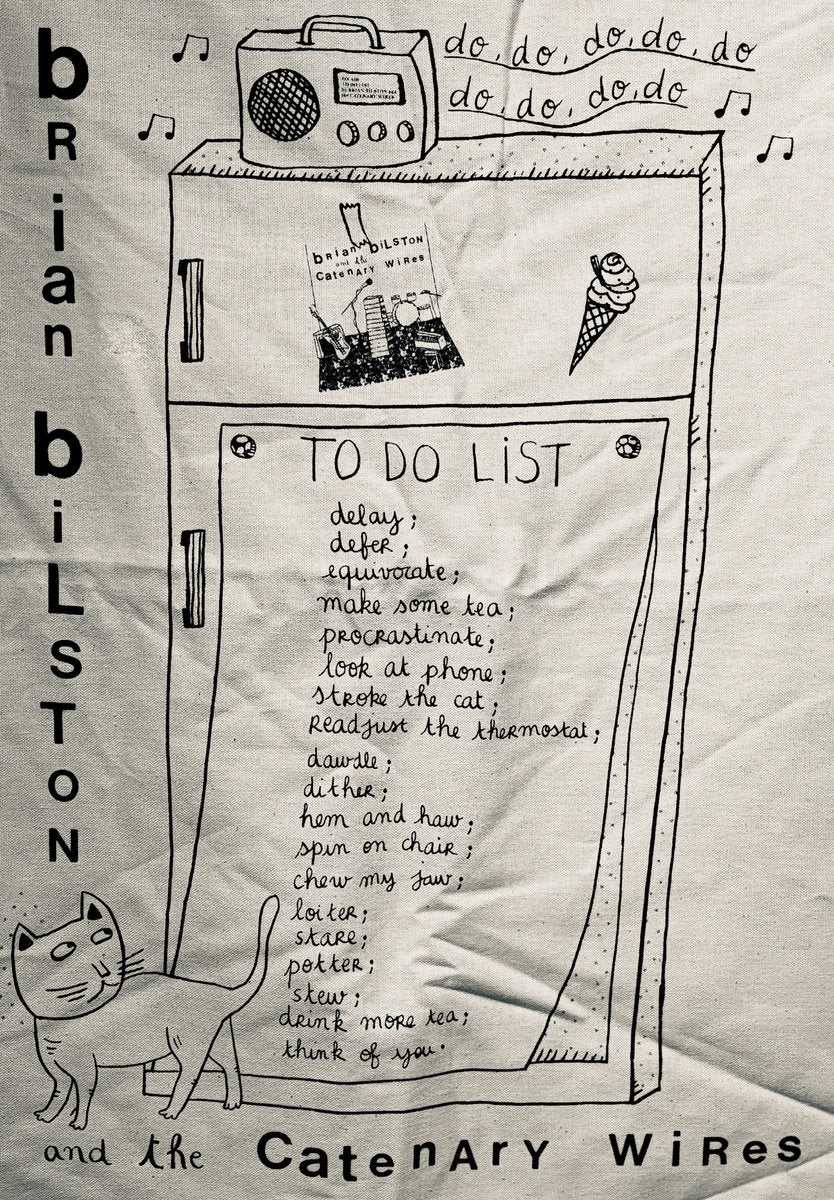 brian
do, do, do, do, do
do, do, do, do
ON AIR
TO DO LIST
by BRIAN BILSTON and
the CATENARY WIRES
brian biLSToN
and the
CatenAry WiRes
biLSToN
TO DO LiST
delay;
defer;
equivocate;
make some tea;
procrastinate;
look at phone;
stroke the cat;
Readjust the thermostat;
dawdle;
dither;
hem and haw;
spin on chair;
chew my jaw;
loiter;
stare;
potter;
stew;
drink more tea;
think of you.
and the CatenArY WiRes